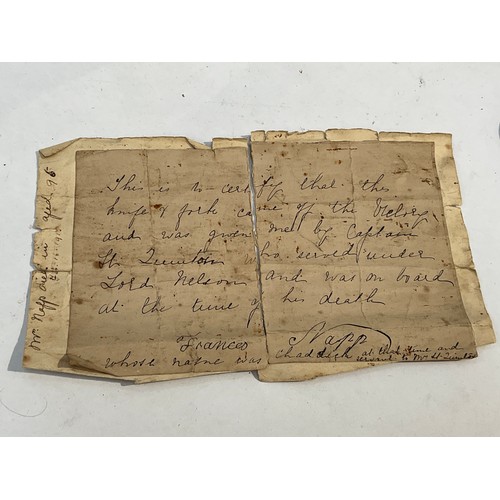 This is to certify that this
knife & fork came off the Victory
and was given me by Captain
St Quinton who served under
Lord Nelson and was on board
at the time of his death
Frances Napp
whose name was Chaddick at that time and
servant to Mr St Quinton
Mrs Napp died in aged 96